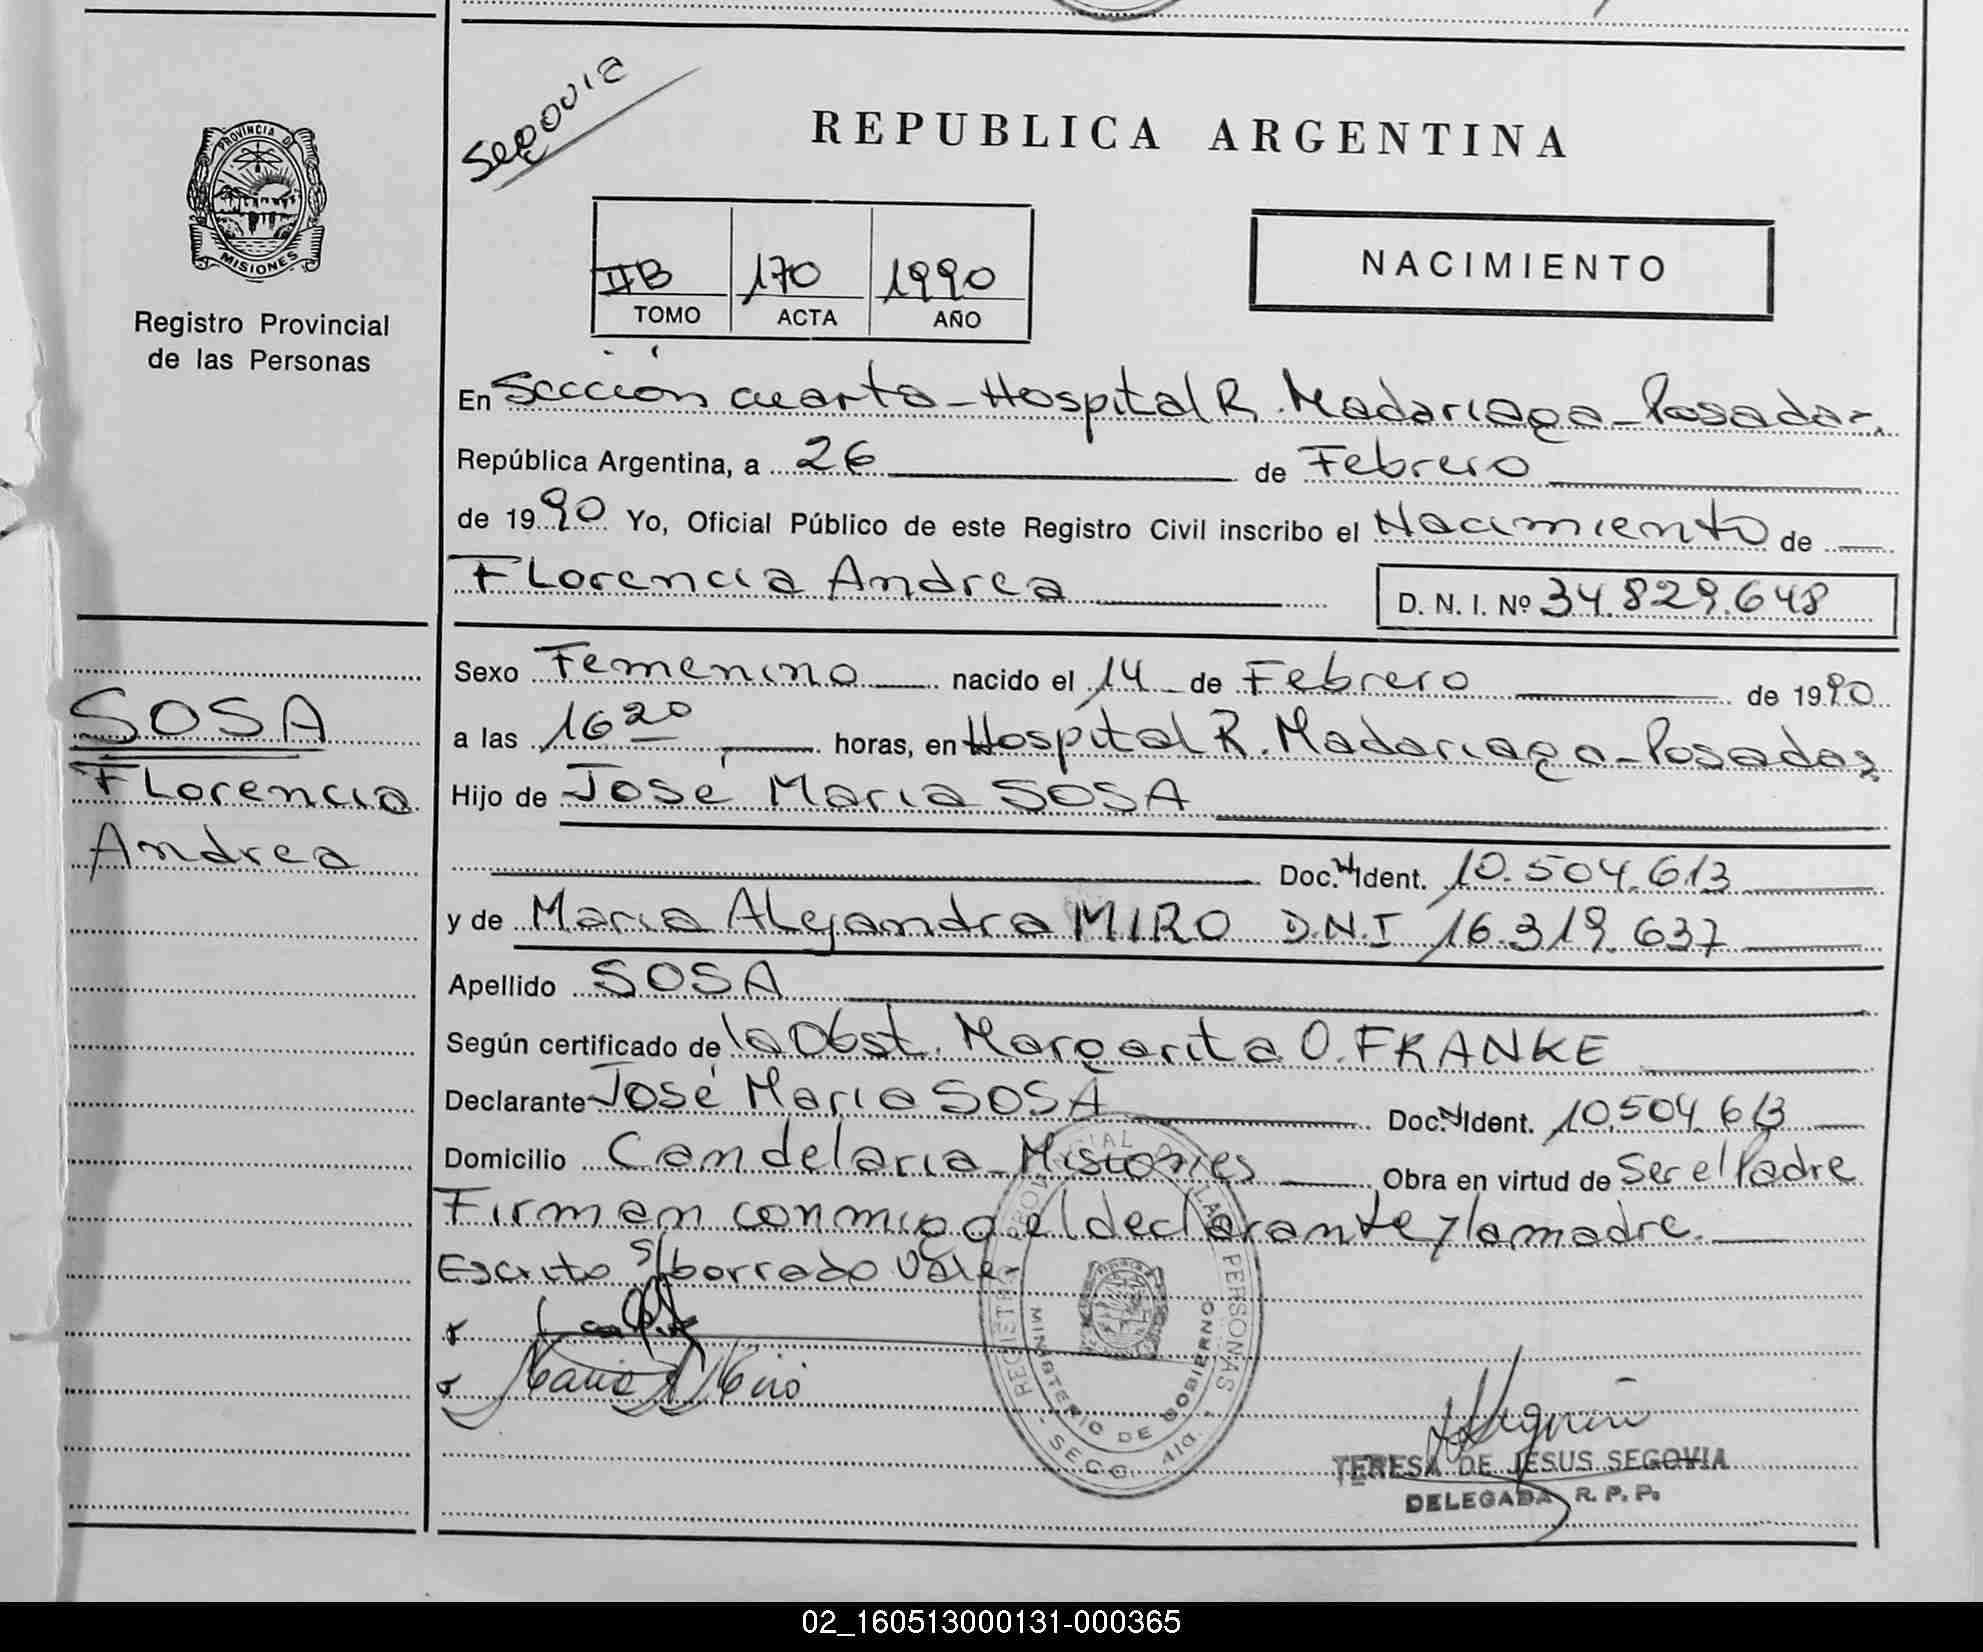 Segovia
REPUBLICA ARGENTINA
PROVINCIA DE
MISIONES
Registro Provincial
de las Personas
IIB 170 1990
TOMO ACTA AÑO
NACIMIENTO
En Sección cuarta - Hospital R. Madariaga - Posadas,
República Argentina, a 26 de Febrero
de 1990 Yo, Oficial Público de este Registro Civil inscribo el Nacimiento de
Florencia Andrea D. N. I. Nº 34.829.648
SOSA
Florencia
Andrea
Sexo Femenino nacido el 14 de Febrero de 1990
a las 16 20 horas, en Hospital R. Madariaga - Posadas
Hijo de José Maria SOSA
Doc. Ident. 10.504.613
y de Maria Alejandra MIRO D.N.I 16.319.637
Apellido SOSA
Según certificado de la Obst. Margarita O. FRANKE
Declarante José Maria SOSA Doc. Ident. 10.504.613
Domicilio Candelaria - Misiones Obra en virtud de Ser el Padre
Firman conmigo el declarante y la madre.
Escrito s/borrado Vale.
Maria A Miró
REGISTRO PROVINCIAL DE LAS PERSONAS
MINISTERIO DE GOBIERNO
SECC. 4ta.
TERESA DE JESUS SEGOVIA
DELEGADA R. P. P.
02_160513000131-000365